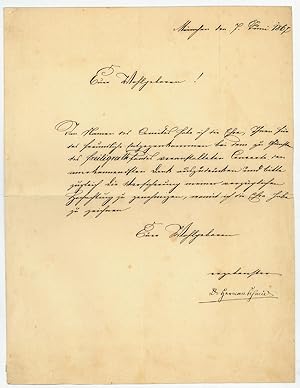 München den 7. Juni 1867.
Euer Wohlgeboren !
Im Namen des Comités habe ich die Ehre, Ihnen für
das freundliche Entgegenkommen bei dem zu Gunsten
des Freiligrathfondes veranstalteten Concerte den
anerkennendsten Dank auszudrücken und bitte
zugleich die Versicherung meiner vorzüglichen
Hochachtung zu genehmigen, womit ich die Ehre habe
zu zeichnen
Euer Wohlgeboren
ergebenster
Dr Herman Schmid